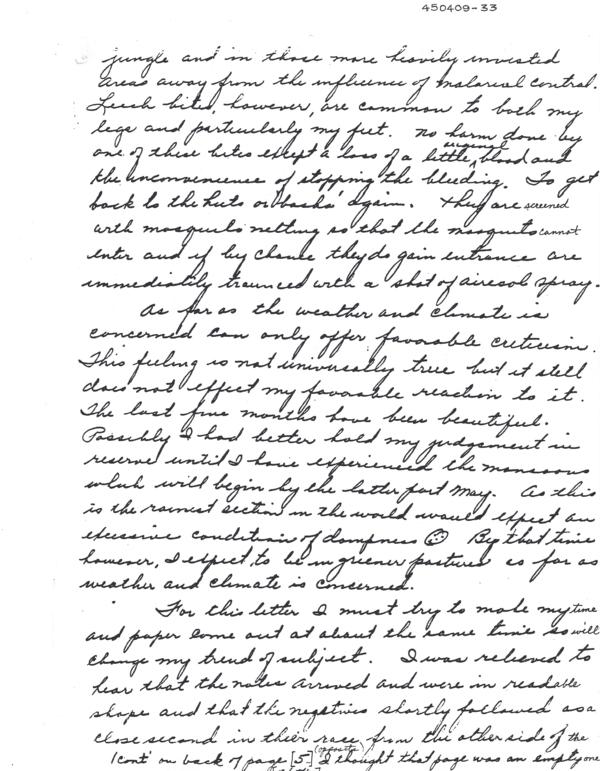 450409-33
jungle and in those more heavily invested
areas away from the influence of malarial control.
Leech bites, however, are common to both my
legs and particularly my feet. no harm done by
one of these bites except a loss of a little original blood and
the inconvenience of stopping the bleeding. To get
back to the huts or 'basha' again. They are screened
with mosquito netting so that the mosquitos cannot
enter and if by chance they do gain entrance are
immediatily trounced with a shot of airesol spray.
As far as the weather and climate is
concerned can only offer favorable criticism.
This feeling is not universally true but it still
does not effect my favorable reaction to it.
The last five months have been beautiful.
Possibly I had better hold my judgement in
reserve until I have experienced the monsoons
which will begin by the latter part May. As this
is the rainest section in the world would expect an
excessive condition of dampness ☺ By that time
however, I expect, to be in greener pastures as far as
weather and climate is concerned.
For this letter I must try to make my time
and paper come out at about the same time so will
change my trend of subject. I was relieved to
hear that the notes arrived and were in readable
shape and that the negatives shortly followed as a
close second in their race from the other side of the
(cont' on back of page [5.] (opposite) I thought that page was an empty one